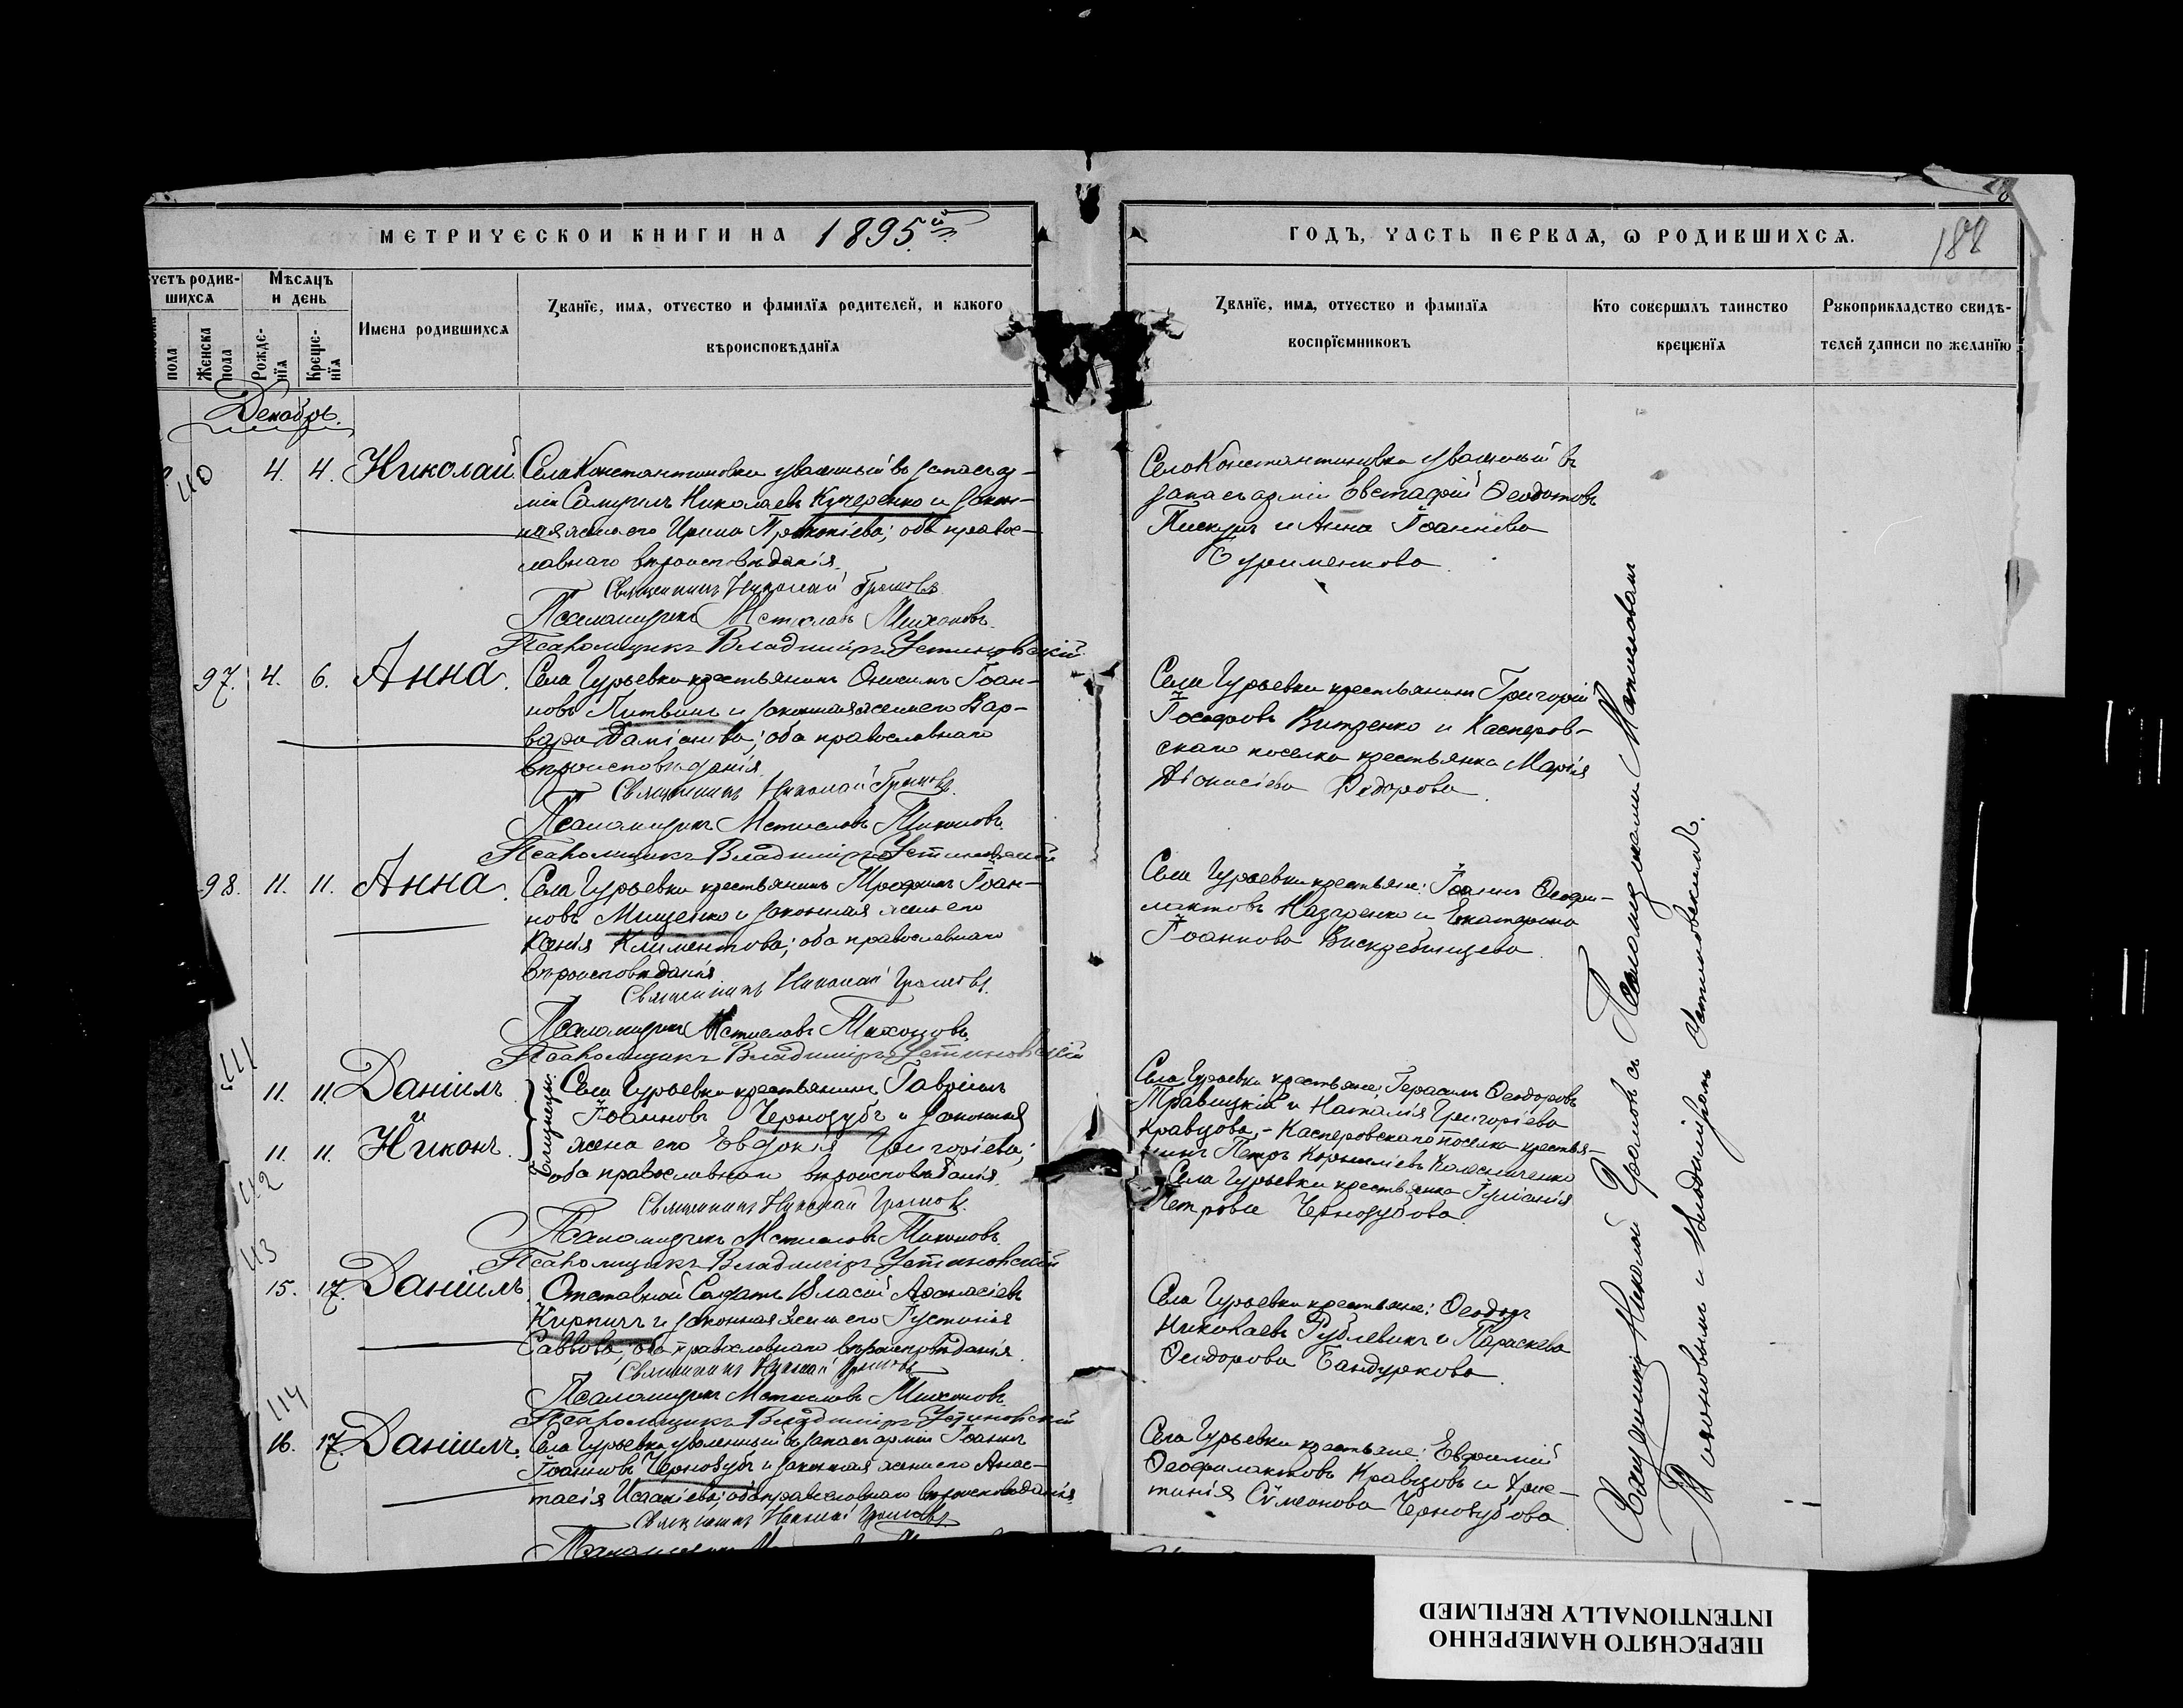 МЕТРИЧЕСКОИ КНИГИ НА 1895й
ГОДЪ, ЧАСТЬ ПЕРВАѦ, Ѡ РОДИВШИХСѦ.
188
Счетъ родив-
шихсѧ
пола
Женска
пола
Мѣсѧцъ
и день
Рожде-
нїѧ
Креще-
нїѧ
Имена родившихсѧ
Званїе, имѧ, отчество и фамилїѧ родителей, и какого
вѣроисповѣданїѧ
Званїе, имѧ, отчество и фамилїѧ
воспрїемниковъ
Кто совершалъ таинство
крещенїѧ
Рукоприкладство свидѣ-
телей записи по желанїю
Декабрь.
110 4. 4. Николай.
Села Константиновки уволенный въ запасъ ар-
міи Самуилъ Николаевъ Кучеренко и закон-
ная жена его Ирина Прокопіева; оба правос-
лавнаго вѣроисповѣданія.
Священникъ Николай Громовъ
Псаломщикъ Мстиславъ Тихоновъ.
Псаломщикъ Владиміръ Устиновскій
Село Константиновки уволеный въ
запасъ арміи Евстафій Ѳеодотовъ
Пискунъ и Анна Іоаннова
Буріменкова.
97. 4. 6. Анна.
Села Гурьевки крестьянинъ Онисимъ Іоан-
новъ Литвинъ и законная жена его Вар-
вара Даміанова; оба православнаго
вѣроисповѣданія.
Священникъ Николай Громовъ.
Псаломщикъ Мстиславъ Тихоновъ.
Псаломщикъ Владиміръ Устиновскій
Села Гурьевки крестьянинъ Григорій
Іосифовъ Витренко и Касперов-
скаго поселка крестьянка Марія
Аѳанасіева Ѳедорова.
98. 11. 11. Анна.
Села Гурьевки крестьянинъ Трофимъ Іоан-
новъ Мищенко и законная жена его
Ксенія Климентова; оба православнаго
вѣроисповѣданія.
Священникъ Николай Громовъ.
Псаломщикъ Мстиславъ Тихоновъ.
Псаломщикъ Владиміръ Устиновскій
Села Гурьевки крестьяне: Іоаннъ Ѳеофи-
лактовъ Назаренко и Екатерина
Іоаннова Вискребинцева.
111 11. 11. Даніилъ
и
112 11. 11. Никонъ.
Близнецы.
Села Гурьевки крестьянинъ Гавріилъ
Іоанновъ Чернозубъ и законная
жена его Евдокія Григоріева;
оба православнаго вѣроисповѣданія.
Священникъ Николай Громовъ.
Псаломщикъ Мстиславъ Тихоновъ.
Псаломщикъ Владиміръ Устиновскій
Села Гурьевки крестьяне: Герасимъ Ѳеодоровъ
Правицкій и Наталія Григоріева
Кравцова, - Касперовскаго поселка крестья-
нинъ Петръ Корниліевъ Колесниченко
Села Гурьевки крестьянка Іуліанія
Петрова Чернозубова.
113 15. 17. Даніилъ.
Отставной Солдатъ Власій Аѳанасіевъ
Кирпичъ и законная жена его Іустинія
Саввова, оба православнаго вѣроисповѣданія.
Священникъ Николай Громовъ
Псаломщикъ Мстиславъ Тихоновъ.
Псаломщикъ Владиміръ Устиновскій
Села Гурьевки крестьяне: Ѳеодоръ
Николаевъ Рублевикъ и Параскева
Ѳеодорова Бандуркова.
114 16. 17. Даніилъ.
Села Гурьевки уволенный въ запасъ арміи Іоаннъ
Іоанновъ Чернозубъ и законная жена его Анас-
тасія Исакіева; оба православнаго вѣроисповѣданія.
Священникъ Николай Громовъ
Села Гурьевки крестьяне: Евфимій
Ѳеофилактовъ Кравцовъ и Хрис-
тинія Сѵмеонова Чернозубова.
Священникъ Николай Громовъ съ Псаломщиками Мстиславомъ
Тихоновымъ и Владиміромъ Устиновскимъ.
ПЕРЕСНЯТО НАМЕРЕННО
INTENTIONALLY REFILMED